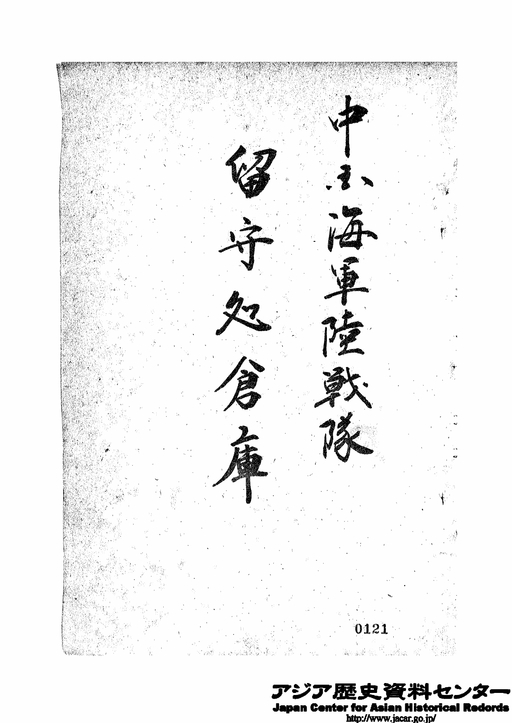 中国海軍陸戦隊
留守処倉庫
0121
アジア歴史資料センター
Japan Center for Asian Historical Records
http://www.jacar.go.jp/